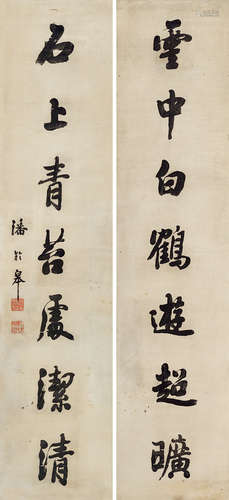 雲中白鶴遊超曠
石上青苔處潔清
潘齡皋